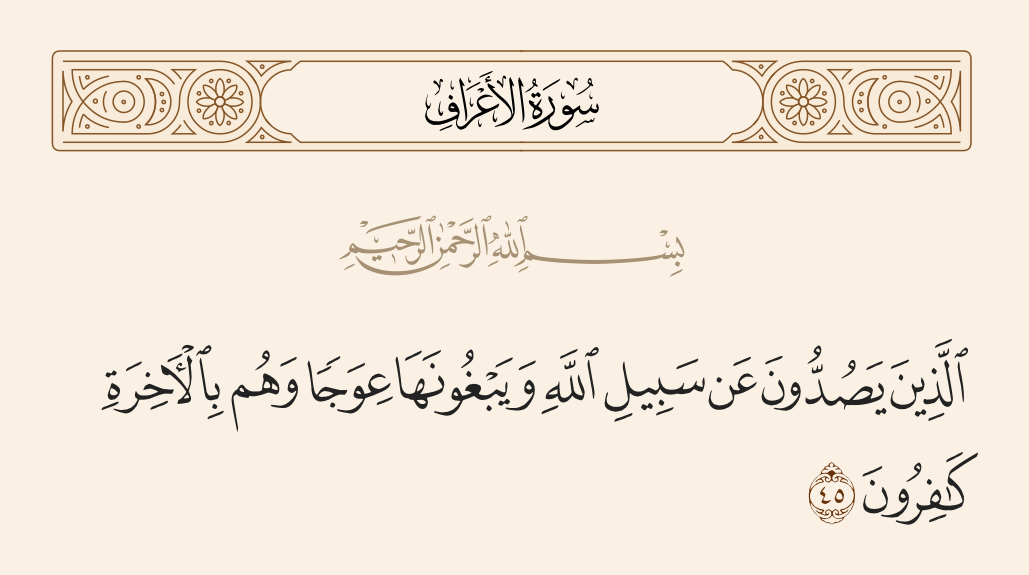 سُورَةُ الأَعْرَافِ
بِسْمِ ٱللَّهِ ٱلرَّحْمَٰنِ ٱلرَّحِيمِ
ٱلَّذِينَ يَصُدُّونَ عَن سَبِيلِ ٱللَّهِ وَيَبْغُونَهَا عِوَجًا وَهُم بِٱلْـَٔاخِرَةِ
كَـٰفِرُونَ ٤٥